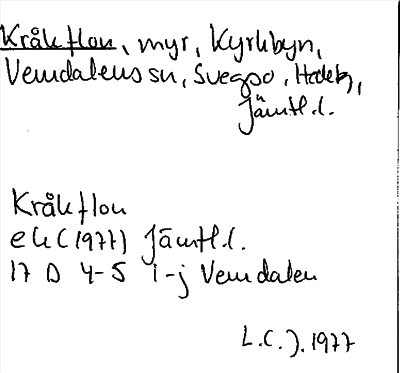 Kråkflon, myr, Kyrkbyn,
Vemdalens sn, Svegso, Hedeb,
Jämtl.l.
Kråkflon
ek (1977) Jämtl.l.
17 D 4-5 i-j Vemdalen
L.C.J. 1977